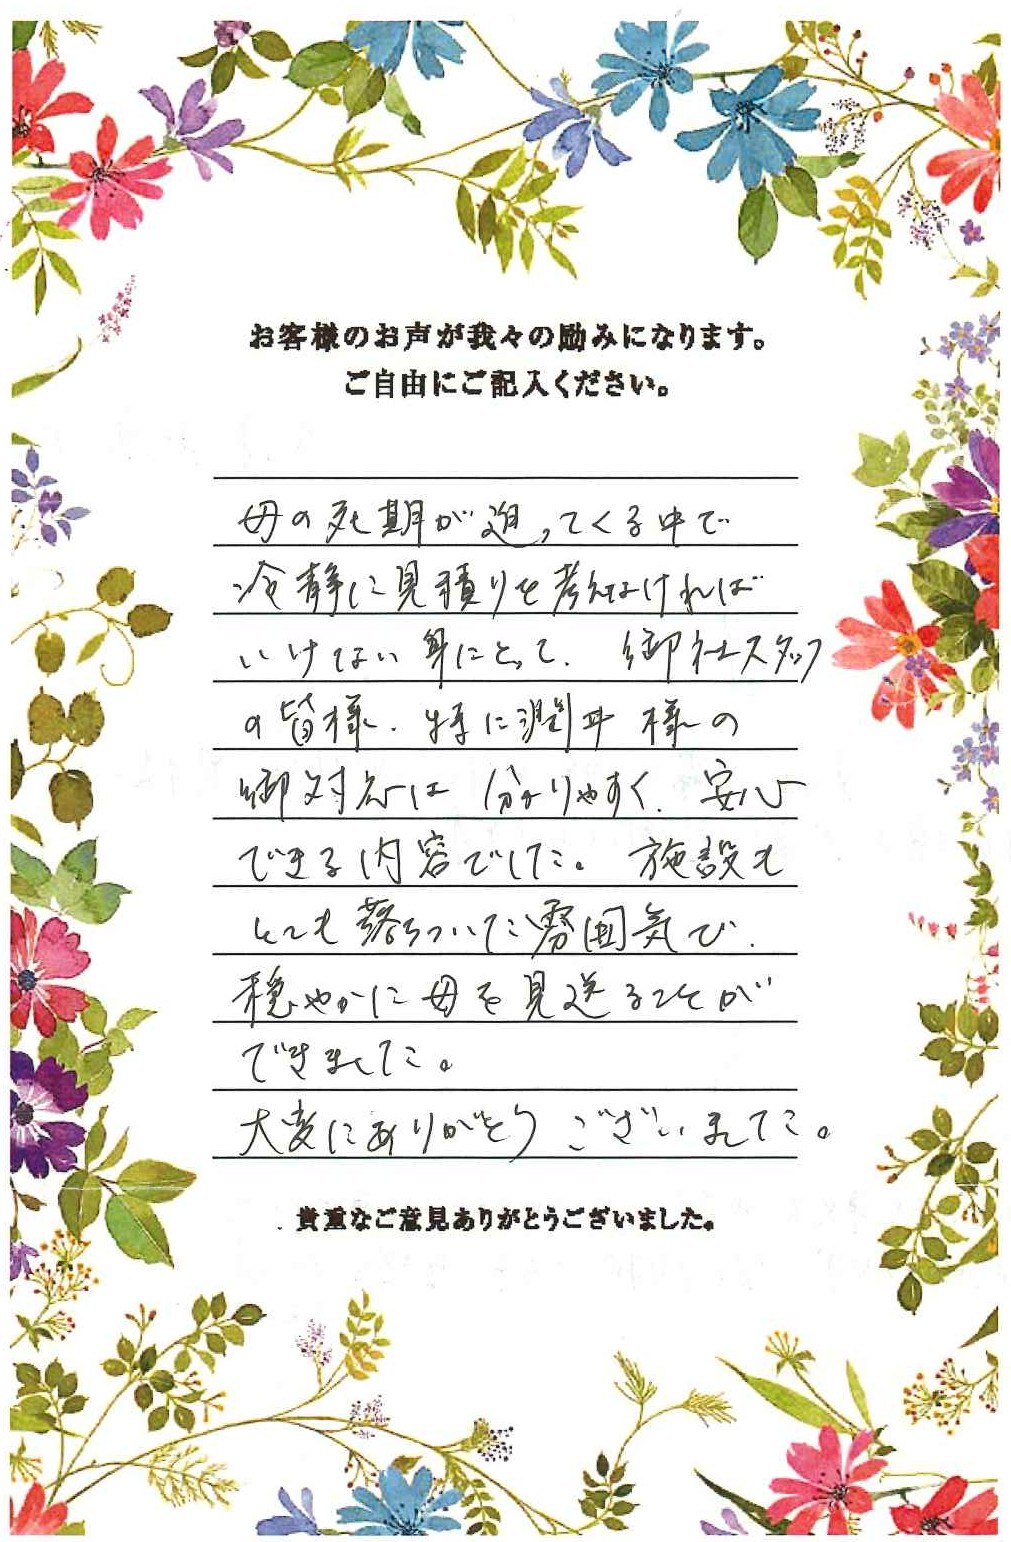 お客様のお声が我々の励みになります。
ご自由にご記入ください。
母の死期が迫ってくる中で
冷静に見積りを考えなければ
いけない身にとって、御社スタッフ
の皆様、特に潤井様の
御対応は分かりやすく、安心
できる内容でした。施設も
とても落ちついた雰囲気で、
穏やかに母を見送ることが
できました。
大変にありがとうございました。
貴重なご意見ありがとうございました。